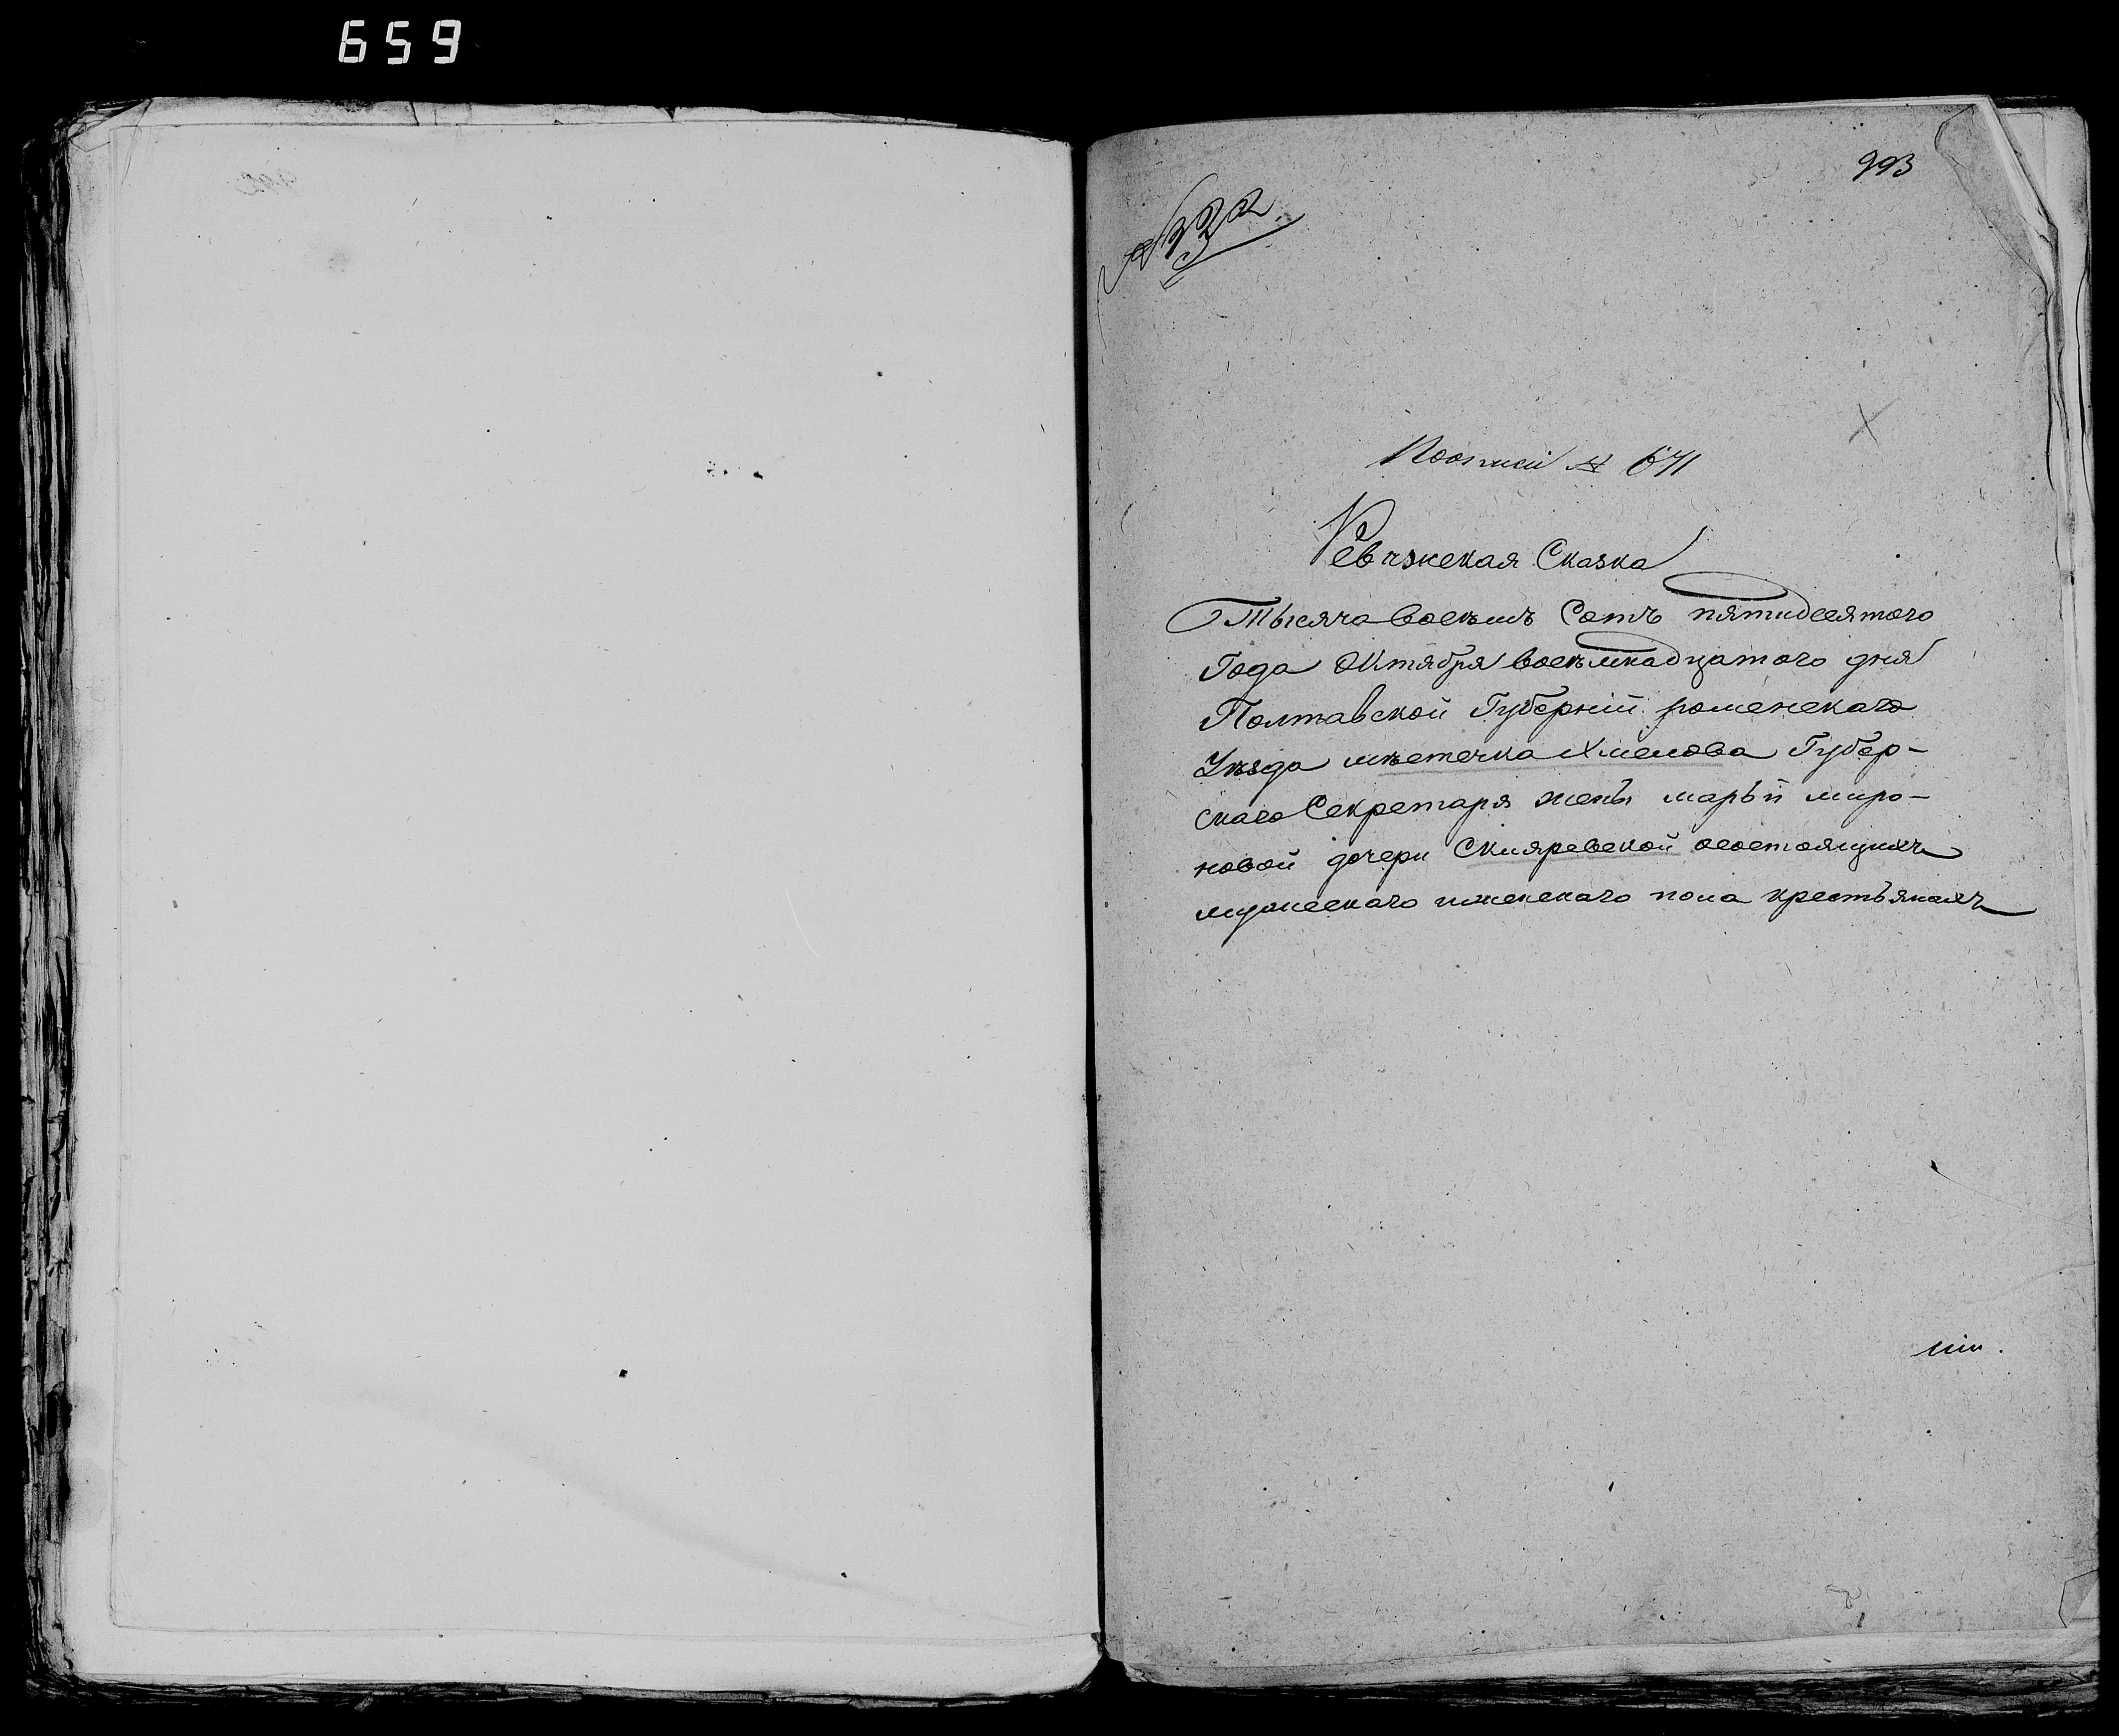 659
993
По описи № 671
Ревизская Сказка
Тысяча восемь Сотъ пятидесятого
Года Октября восемнадцатого дня
Полтавской Губерніи роменскаго
Уезда местечка Хмелова Губер-
скаго Секретаря жены марьи миро-
новой дочери Скляревской осостоящихъ
мужескаго иженскаго пола крестьянахъ